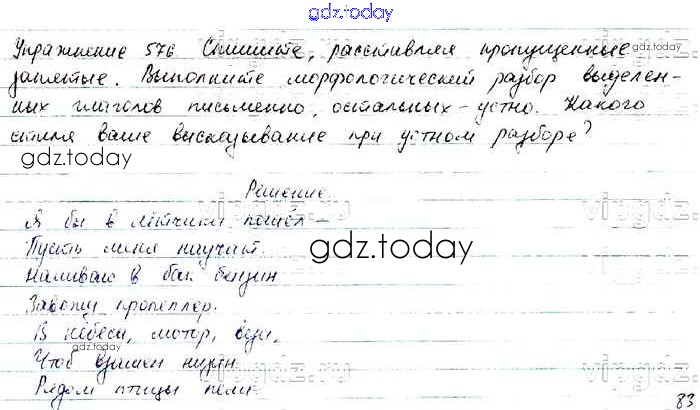 gdz.today
Упражнение 576 Спишите, расставляя пропущенные
запятые. Выполните морфологический разбор выделен-
ных глаголов письменно, остальных - устно. Какого
стиля ваше высказывание при устном разборе?
gdz.today
Решение.
Я бы в лётчики пошёл -
Пусть меня научат.
gdz.today
Наливаю в бак бензин
Завожу пропеллер.
В небеса, мотор, вези,
gdz.today
Чтоб взамен низин
Рядом птицы пели.
83